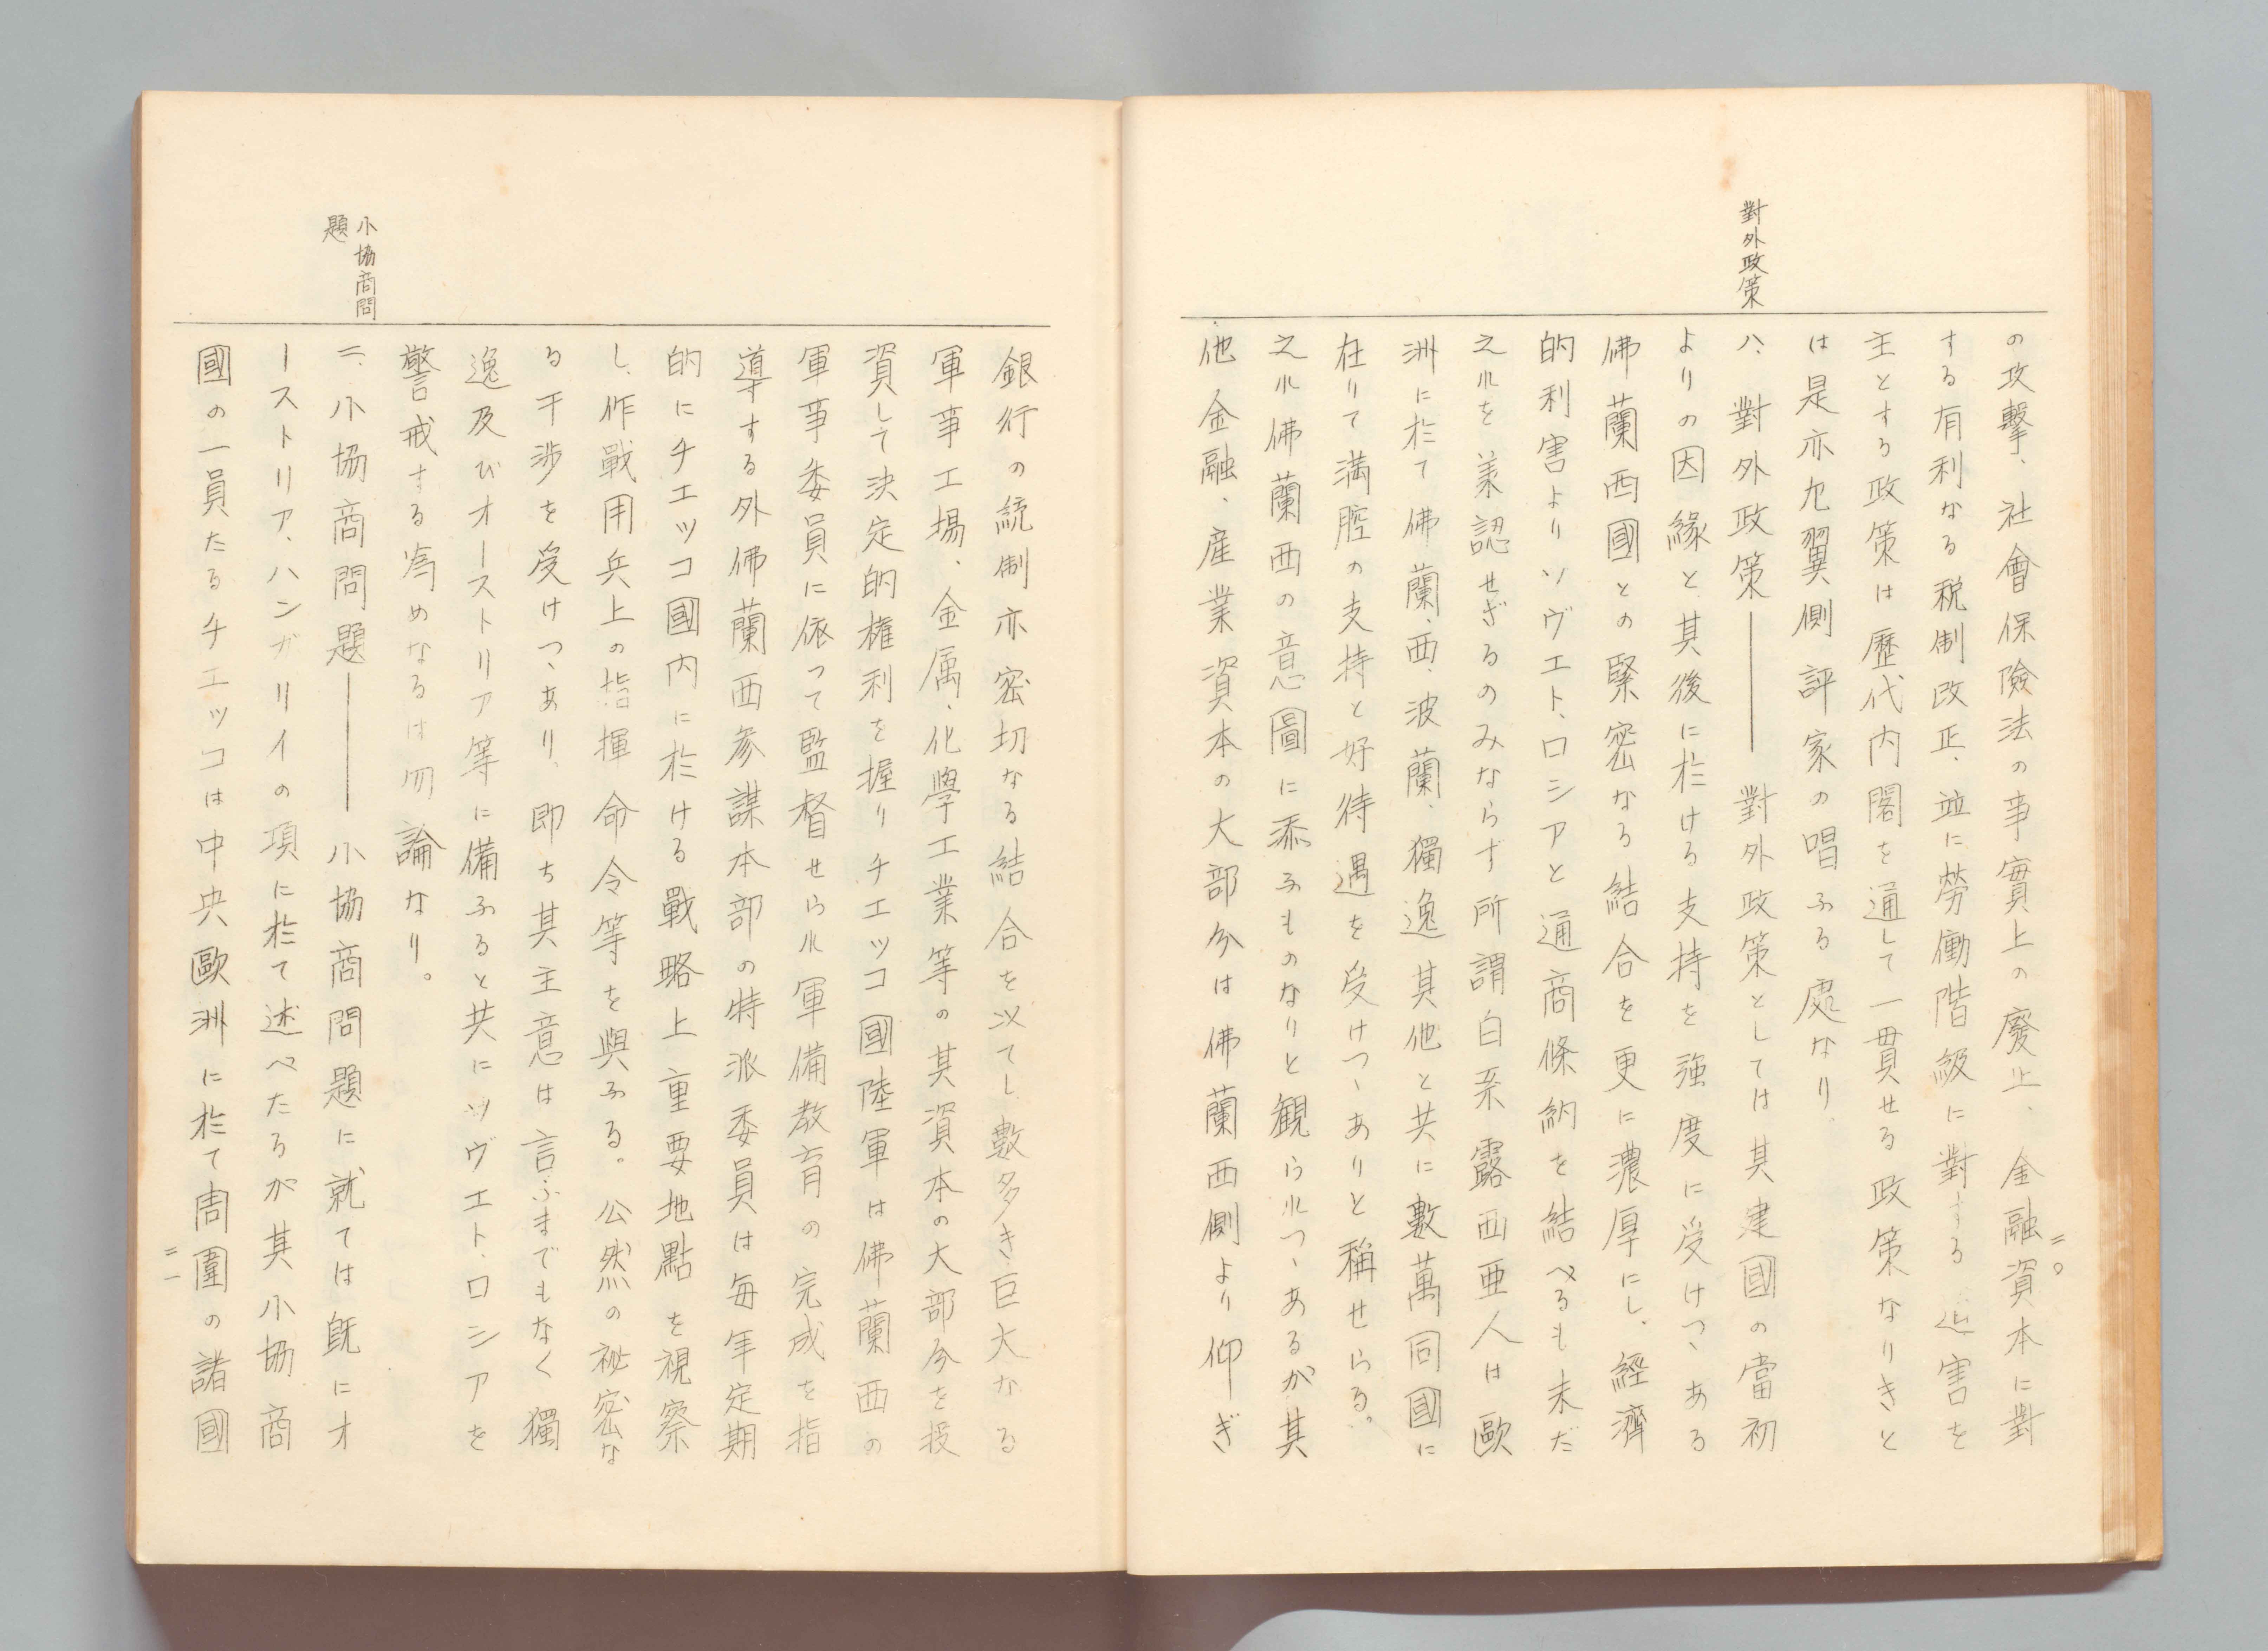 對外政策
の攻撃、社會保險法の事實上の廢止、金融資本に對
する有利なる税制改正、並に勞働階級に對する迫害を
主とする政策は歷代内閣を通して一貫せる政策なりきと
は是亦左翼側評家の唱ふる處なり、
八、對外政策――對外政策としては其建國の當初
よりの因緣と、其後に於ける支持を強度に受けつゝある
佛蘭西國との緊密なる結合を更に濃厚にし、經濟
的利害よりソヴエト、ロシアと通商條納を結べるも未だ
之れを美認せざるのみならず所謂白系露西亜人は歐
洲に於て佛蘭、西、波蘭、獨逸其他と共に數萬同國に
在りて満腔の支持と好待遇を受けつゝありと稱せらる。
之れ佛蘭西の意圖に添ふものなりと観られつゝあるが其
他金融、産業資本の大部分は佛蘭西側より仰ぎ
二〇
小協商問
題
銀行の統制亦密切なる結合を以てし數多き巨大なる
軍事工場、金属、化學工業等の其資本の大部分を投
資して決定的権利を握りチエッコ國陸軍は佛蘭西の
軍事委員に依つて監督せられ軍備教育の完成を指
導する外佛蘭西参謀本部の特派委員は毎年定期
的にチエッコ國内に於ける戰略上重要地點を視察
し、作戰用兵上の指揮命令等を與ふる。公然の祕密な
る干渉を受けつゝあり、即ち其主意は言ふまでもなく獨
逸及びオーストリア等に備ふると共にソヴエト、ロシアを
警戒する為めなるは勿論なり。
二、小協商問題――小協商問題に就ては既にオ
ーストリア、ハンガリイの項に於て述べたるが其小協商
國の一員たるチエッコは中央歐洲に於て周圍の諸國
二一